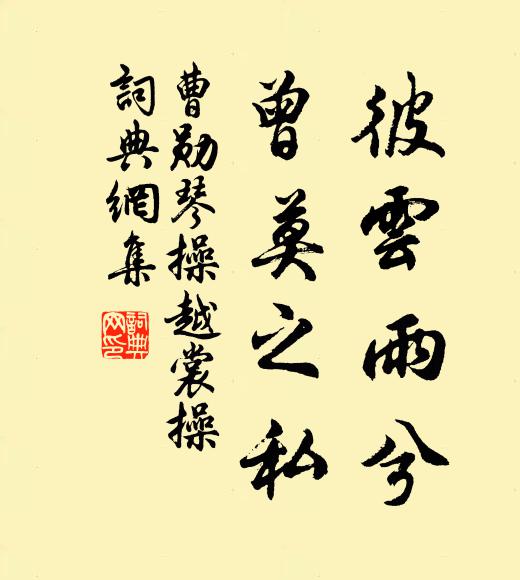 彼雲雨兮
曾莫之私
曹勛琴操越裳操
詞典網集
詞典網印